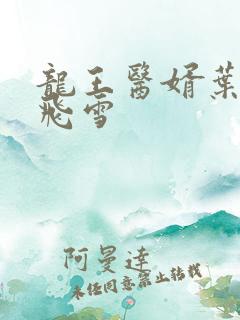 龍王醫婿葉
飛雪
阿曼達
未經同意禁止轉載